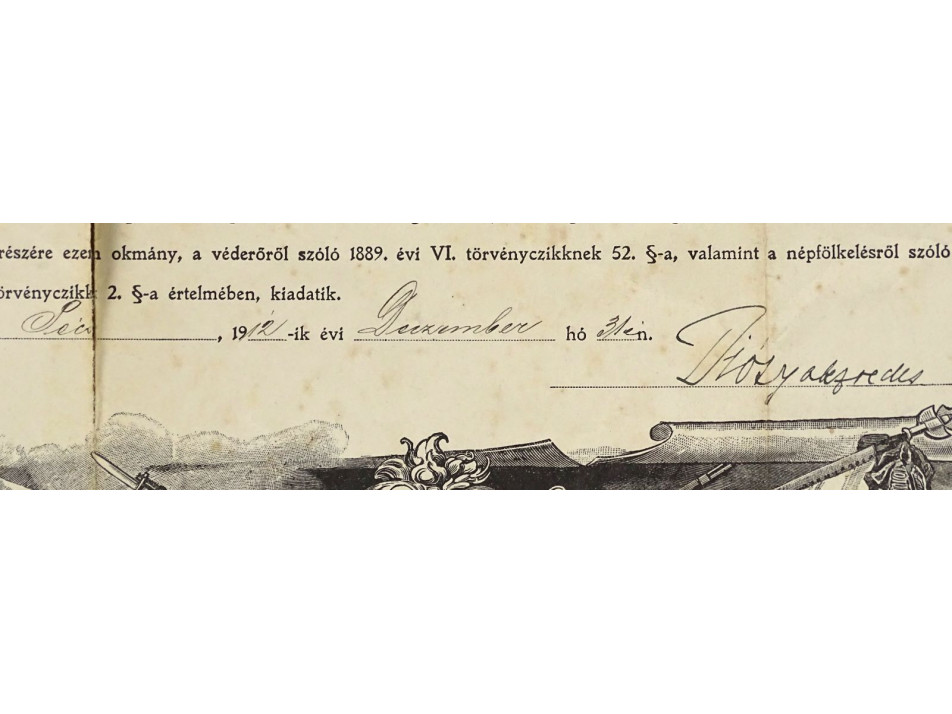 részére ezen okmány, a véderőről szóló 1889. évi VI. törvényczikknek 52. §-a, valamint a népfölkelésről szóló
örvényczikk 2. §-a értelmében, kiadatik.
Pécs, 1912-ik évi Deczember hó 31én.
ezredes